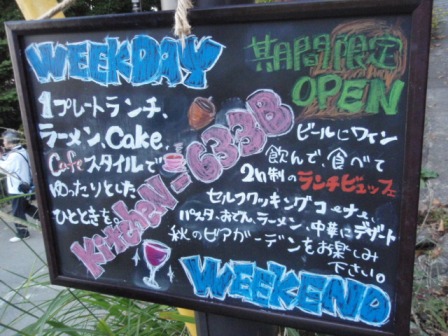 WEEKDAY
1プレートランチ、
ラーメン、Cake、
Cafeスタイルで
ゆったりとした
ひとときを。
KitcheN-633B
期間限定
OPEN
ビールにワイン
飲んで、食べて
2h制のランチビュッフェ
セルフクッキングコーナー、
パスタ、おでん、ラーメン、中華にデザート
秋のビアガーデンをお楽しみ
下さい。
WEEKEND